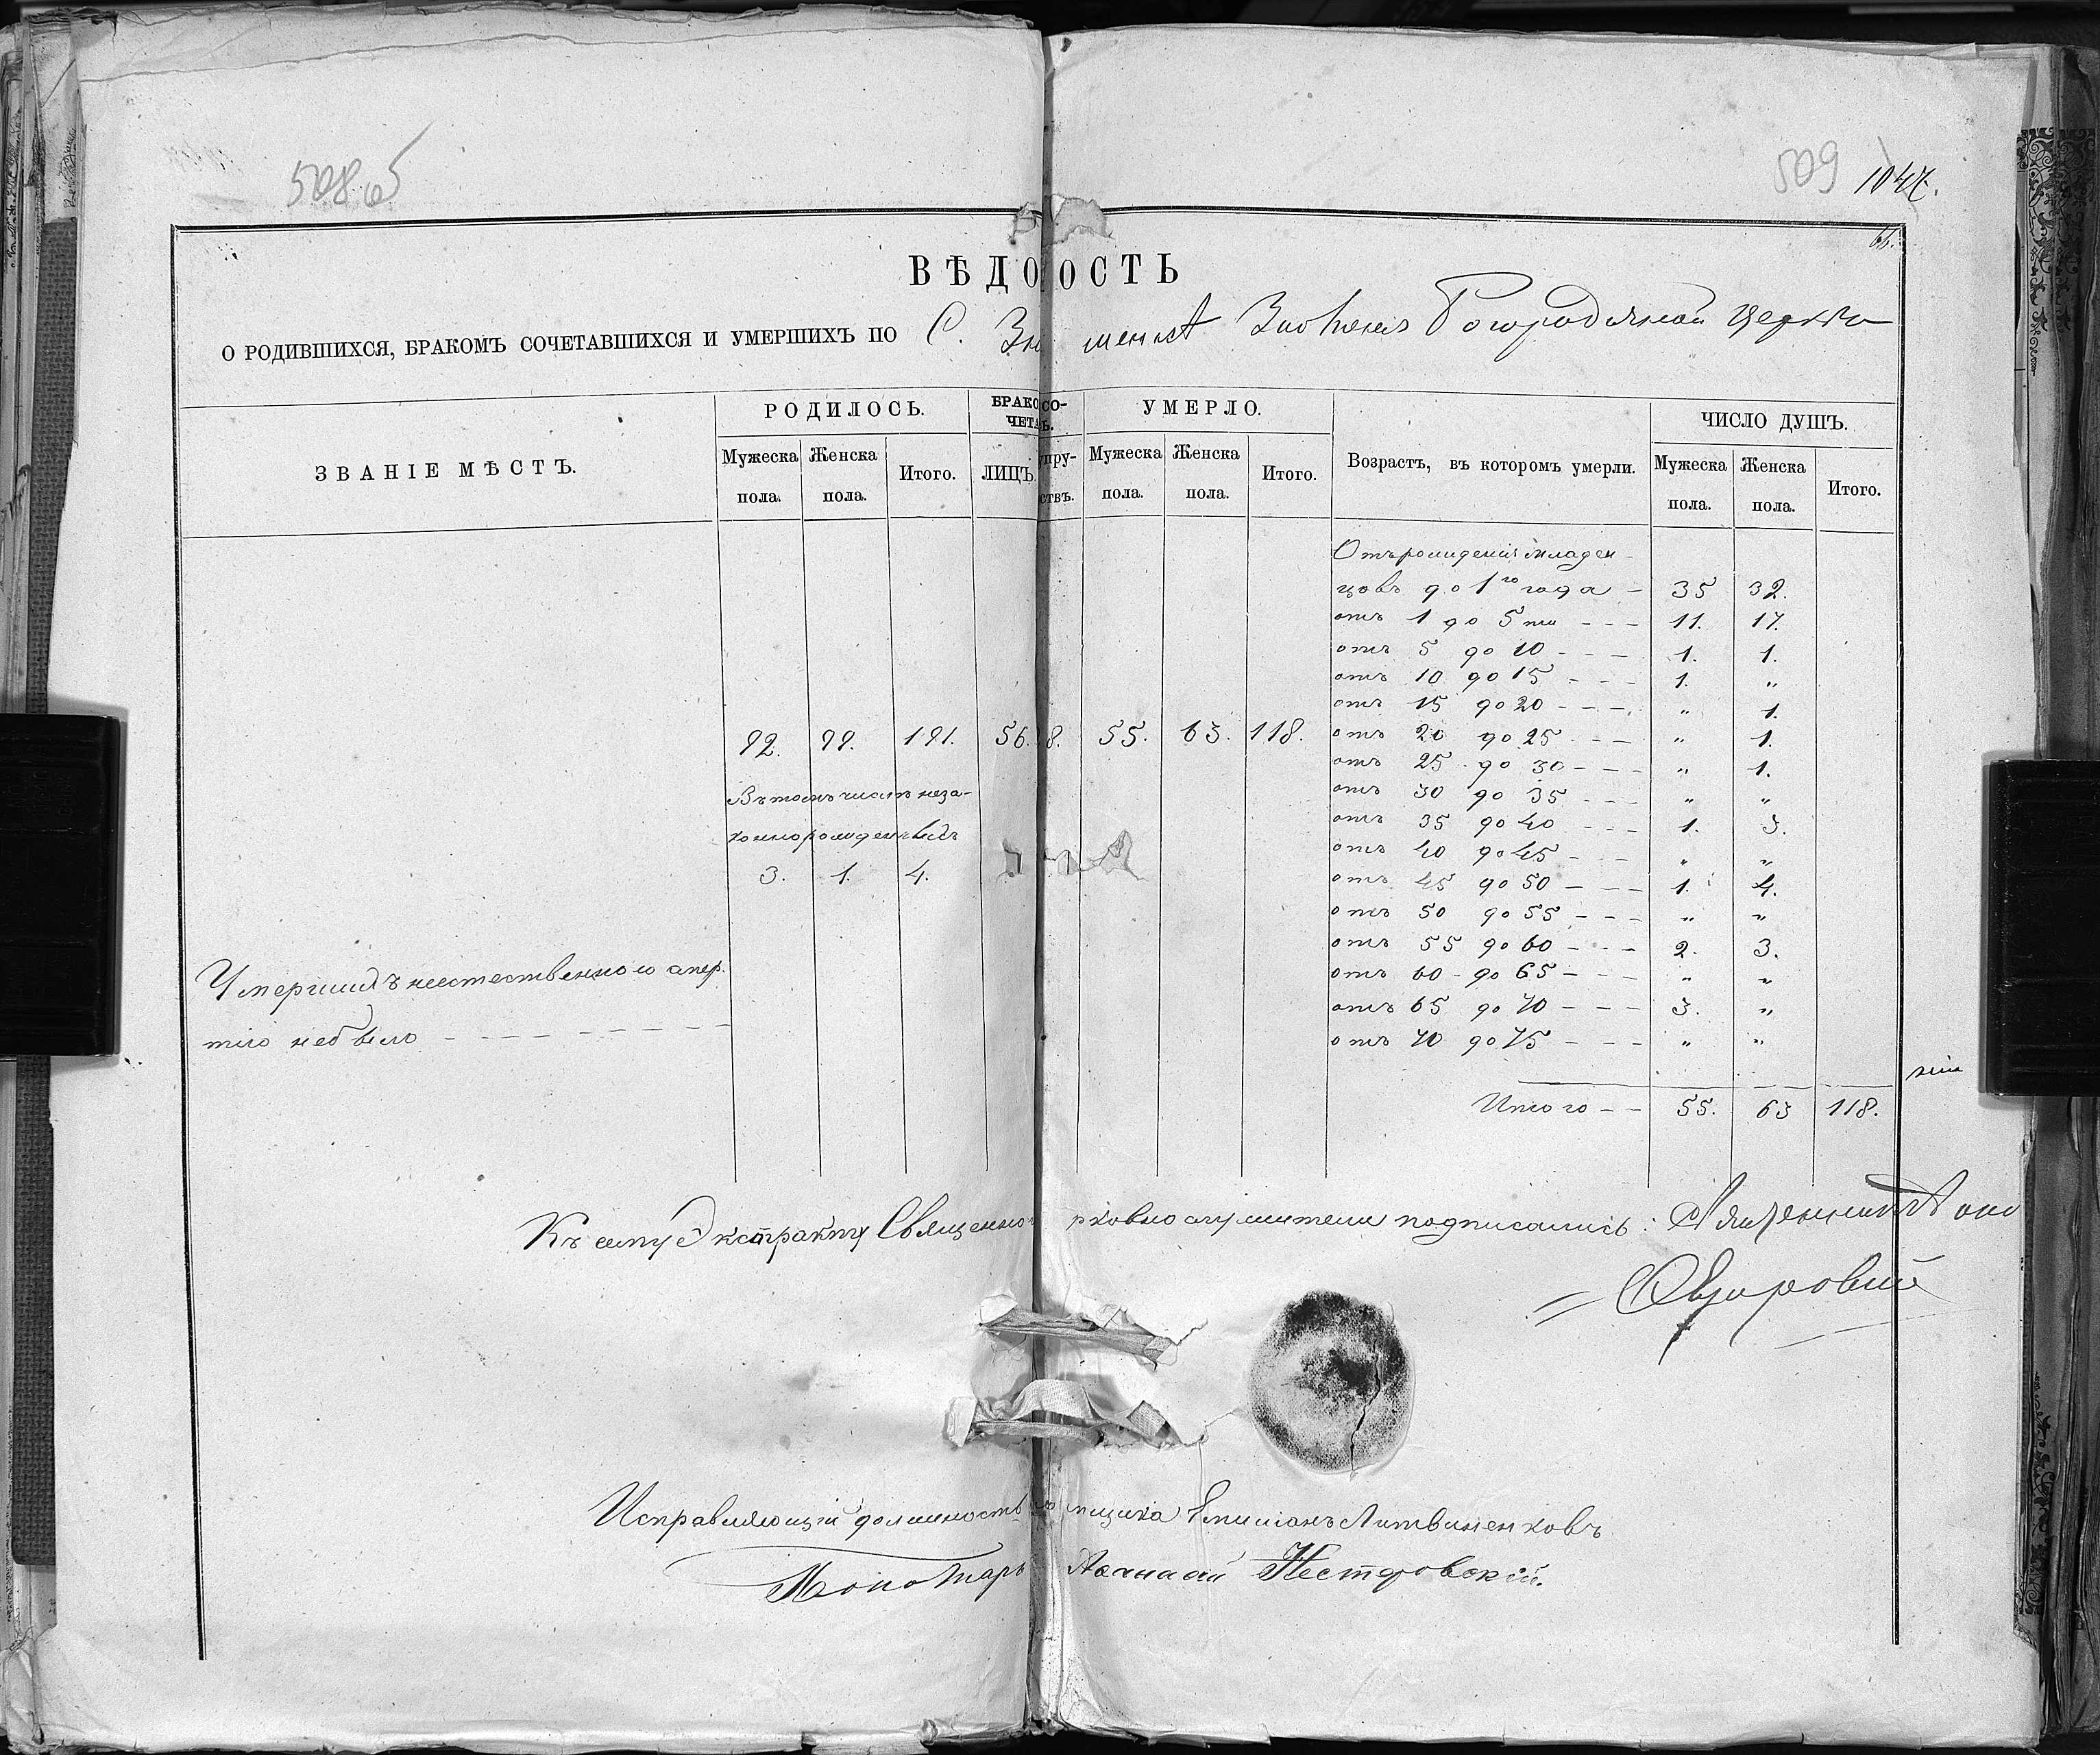 508 об
509 1047.
66.
ВѢДО ОСТЬ
О РОДИВШИХСЯ, БРАКОМЪ СОЧЕТАВШИХСЯ И УМЕРШИХЪ ПО С. Зн менкѣ Богородичной церкви
ЗВАНІЕ МѢСТЪ.
РОДИЛОСЬ.
БРАКО СО-
ЧЕТА Ъ.
УМЕРЛО.
Возрастъ, въ которомъ умерли.
ЧИСЛО ДУШЪ.
Мужеска пола. Женска пола. Итого. ЛИЦЪ. упру- ствъ. Мужеска пола. Женска пола. Итого. Мужеска пола. Женска пола. Итого.
Отъ рожденія младен-
цовъ до 1го года - 35 32.
отъ 1 до 5ти - - - 11. 17.
отъ 5 до 10 - - - 1. 1.
отъ 10 до 15 - - - 1. "
отъ 15 до 20 - - - " 1.
92. 99. 191. 56. 8. 55. 63. 118. отъ 20 до 25 - - - " 1.
отъ 25 до 30 - - - " 1.
Въ томъ числѣ неза- отъ 30 до 35 - - - " "
коннорожденныхъ отъ 35 до 40 - - - 1. 3.
отъ 40 до 45 - - - " "
3. 1. 4. отъ 45 до 50 - - - 1. 4.
отъ 50 до 55 - - - " "
отъ 55 до 60 - - - 2. 3.
Умершихъ неестественною смер- отъ 60 до 65 - - - " "
отъ 65 до 70 - - - 3. "
тію небыло - - - - - - - - - отъ 70 до 75 - - - " "
Итого - - 55. 63 118.
Къ сему Экстракту Священно рковнослужители подписались: Священникъ
Исправляющій должность мщика Литвиненковъ
Пономарь Нестеровскій.